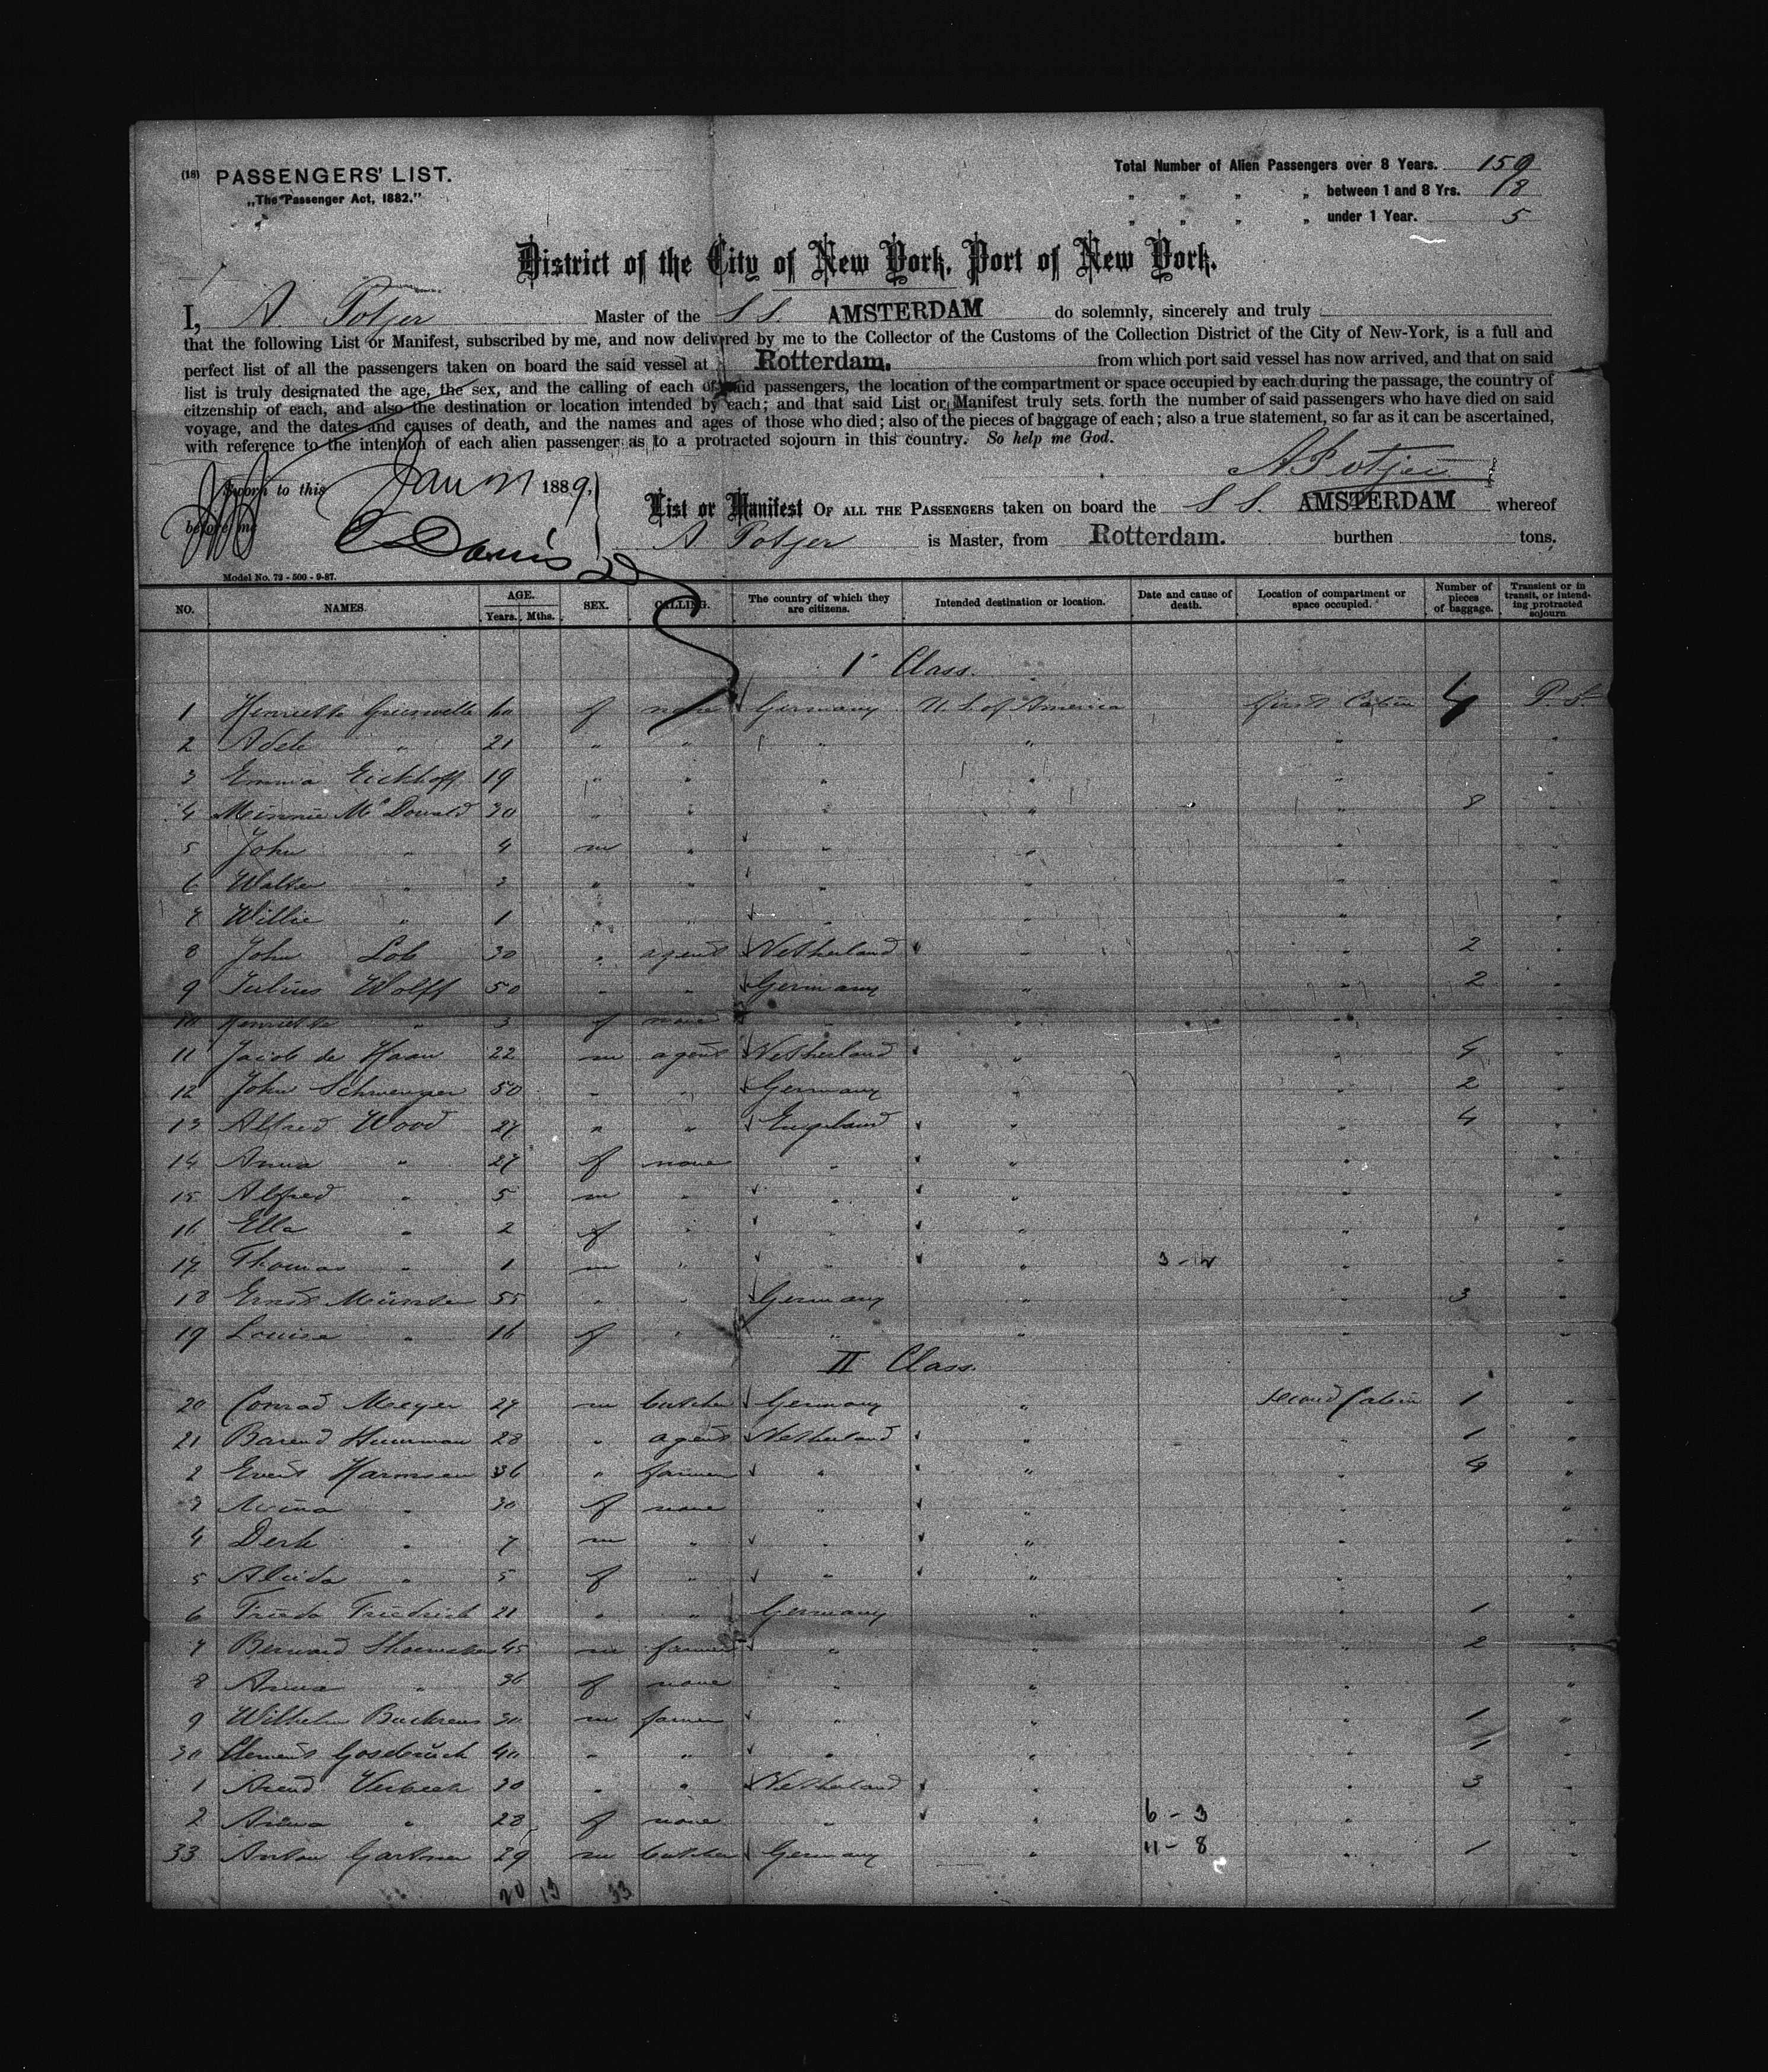 (18) PASSENGERS' LIST.
„The Passenger Act, 1882.”
Total Number of Alien Passengers over 8 Years. 159
„ „ „ „ between 1 and 8 Yrs. 18
„ „ „ „ under 1 Year. 5
District of the City of New York, Port of New York.
I, A. Potjer Master of the S S. AMSTERDAM do solemnly, sincerely and truly
that the following List or Manifest, subscribed by me, and now delivered by me to the Collector of the Customs of the Collection District of the City of New-York, is a full and
perfect list of all the passengers taken on board the said vessel at Rotterdam. from which port said vessel has now arrived, and that on said
list is truly designated the age, the sex, and the calling of each of said passengers, the location of the compartment or space occupied by each during the passage, the country of
citzenship of each, and also the destination or location intended by each; and that said List or Manifest truly sets. forth the number of said passengers who have died on said
voyage, and the dates and causes of death, and the names and ages of those who died; also of the pieces of baggage of each; also a true statement, so far as it can be ascertained,
with reference to the intention of each alien passenger as to a protracted sojourn in this country. So help me God.
A Potjer
Sworn to this Jan 21 1889,
before me
List or Manifest OF ALL THE PASSENGERS taken on board the S S. AMSTERDAM whereof
A Potjer is Master, from Rotterdam. burthen tons.
Model No. 72 - 500 - 9-87.
NO. NAMES. AGE. Years. Mths. SEX. CALLING. The country of which they are citizens. Intended destination or location. Date and cause of death. Location of compartment or space occupied. Number of pieces of baggage. Transient or in transit, or intending protracted sojourn
1 Class.
1 Henrietta f none Germany U. S. of America first Cabin 4 P. S.
2 Adele " 21 " " " " " "
3 Emma Eickhoff 19 " " " " " "
4 Minnie McDonald 30 " " " " " 8 "
5 John " 4 m " " " " "
6 Walter " 2 " " " " " "
7 Willie " 1 " " " " " "
8 John Lob 30 " agent Netherland " " 2 "
9 Julius Wolff 50 " " Germany " " 2 "
10 Henrietta " 3 f none " " " "
11 Jacob de Haan 22 m agent Netherland " " 4 "
12 John 50 " " Germany " " 2 "
13 Alfred Wood 27 " " Engeland " " 4 "
14 Anna " 27 f none " " " "
15 Alfred " 5 m " " " " "
16 Ella " 2 f " " " " "
17 Thomas " 1 m " " " " "
18 Ernst Münster 55 " " Germany " " 3 "
19 Louise " 16 f " " " " "
II Class.
20 Conrad Meeyer 27 m butcher Germany " second Cabin 1 "
21 Barend Huurman 28 " agent Netherland " " 1 "
2 Evert Harmsen 36 " farmer " " " 4 "
3 " 30 f none " " " "
4 Derk " 7 m " " " " "
5 Alida " 5 f " " " " "
6 Frieda Friedrich 21 " " Germany " " 1 "
7 Bernard 45 m farmer " " " 2 "
8 Anna " 36 f none " " " "
9 Wilhelm 30 m farmer " " " 1 "
30 Clemens 40 " " " " " 1 "
1 Arend Verbeek 30 " " Netherland " " 3 "
2 " 28 f none " " 6 - 3 " "
33 Anton Gartner 29 m butcher Germany " 11 - 8 " 1 "
20 13 33